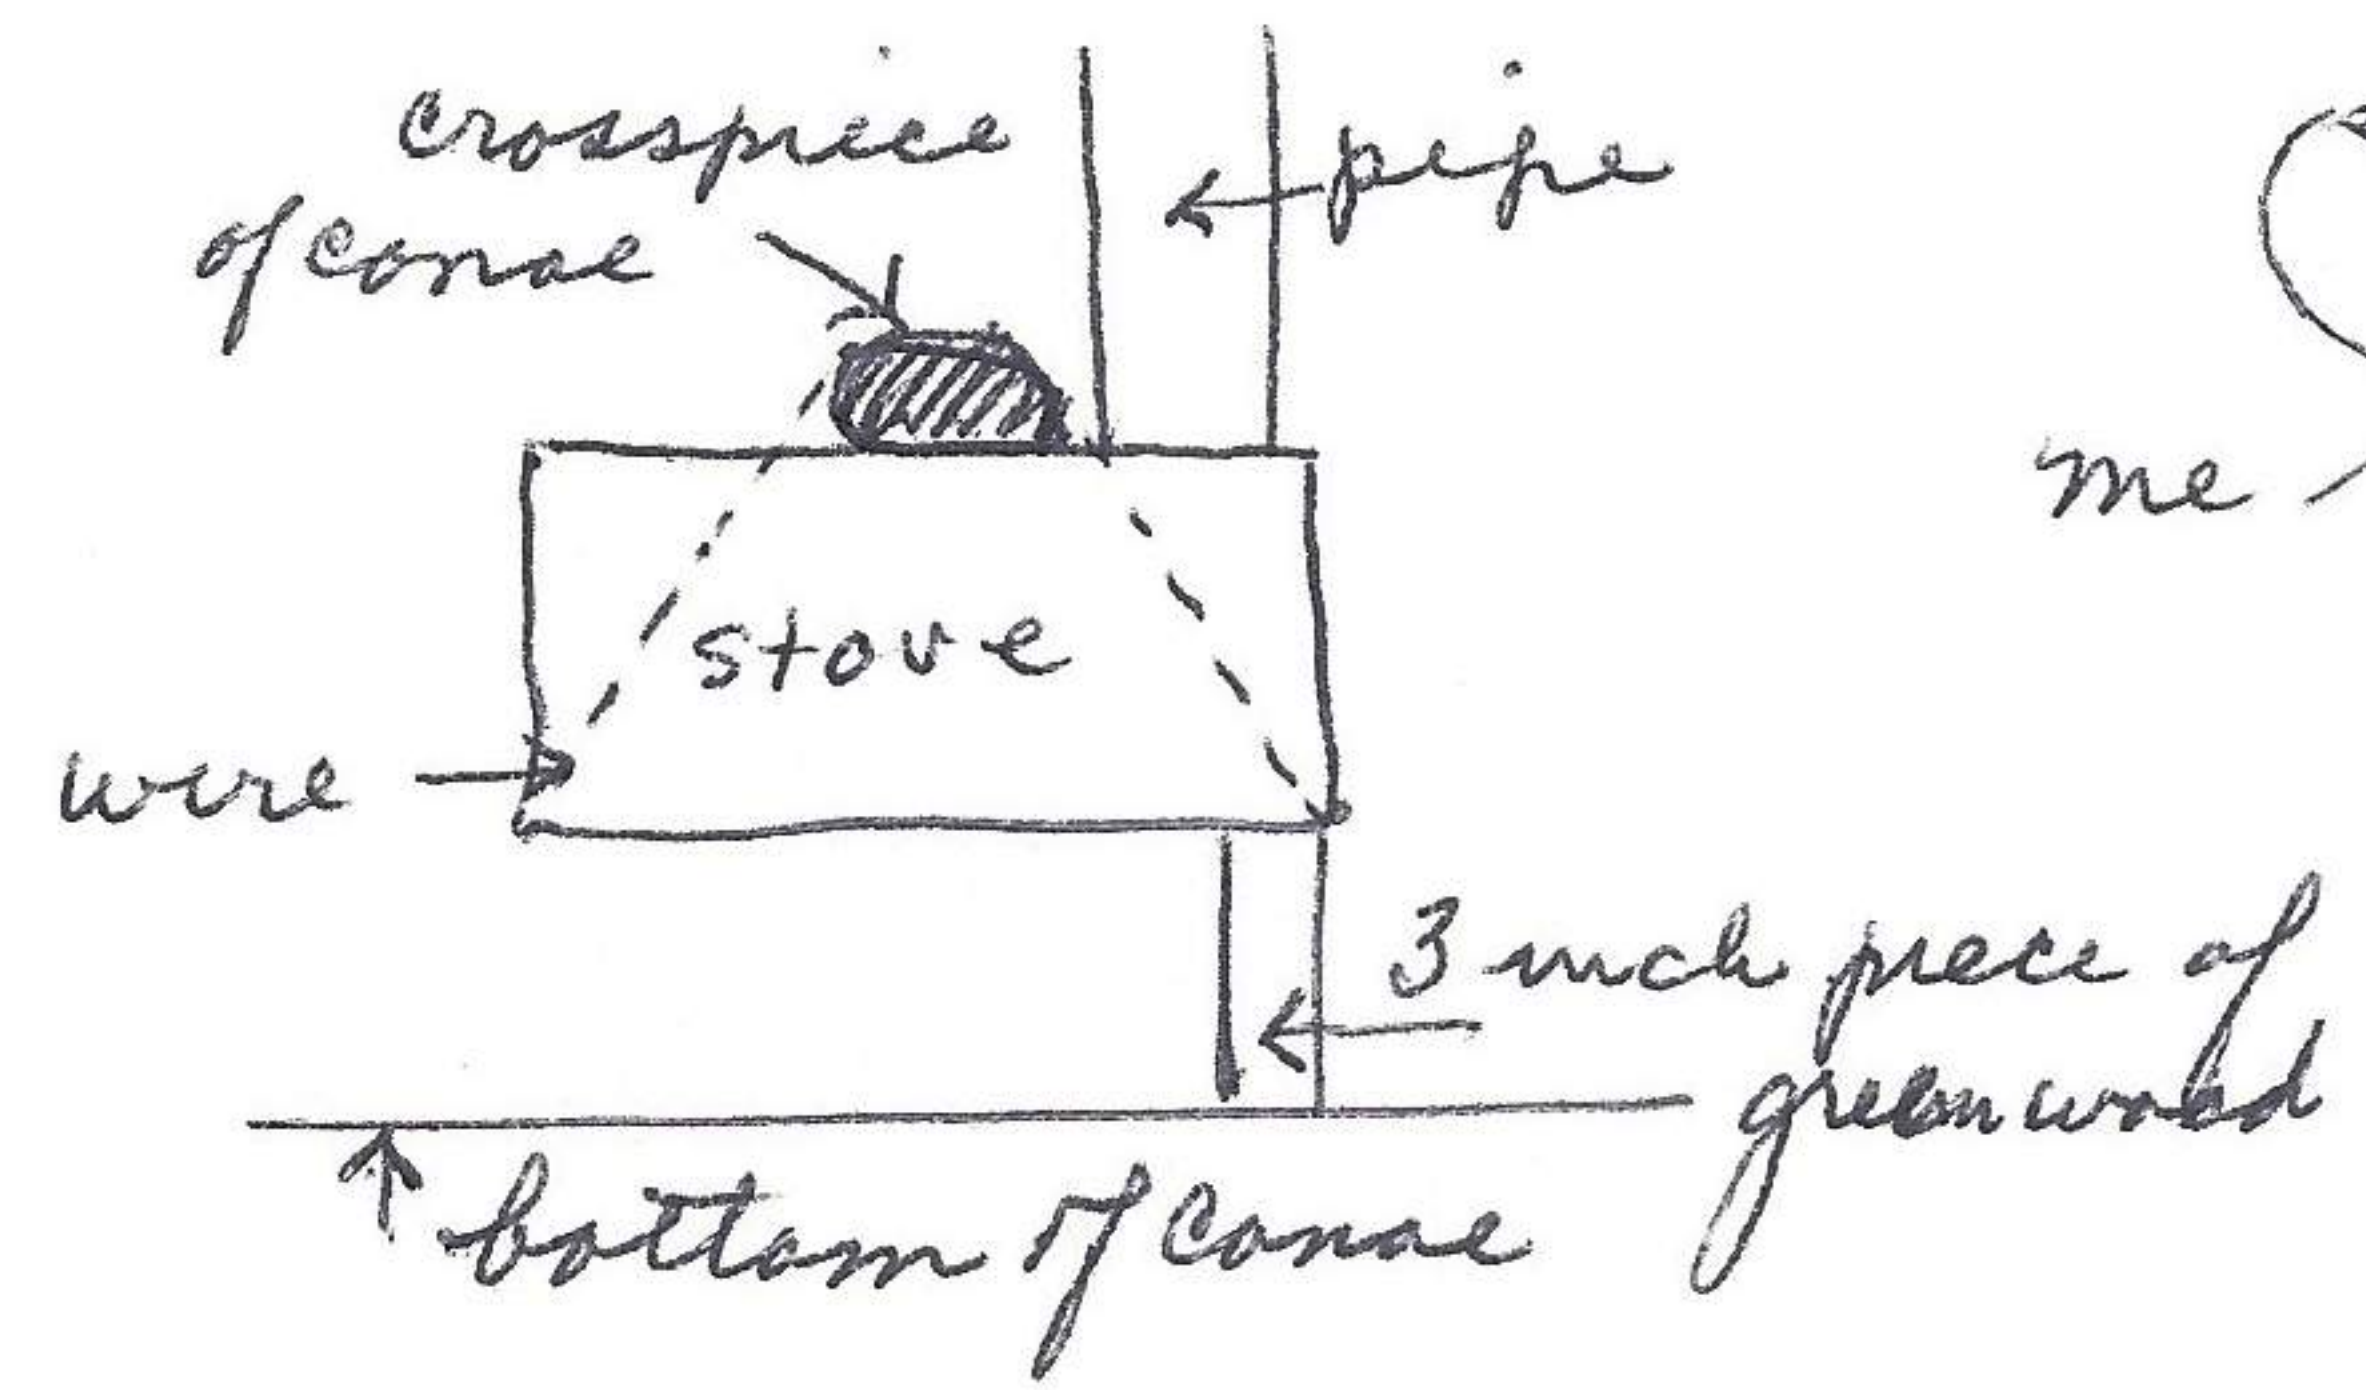 crosspiece
of canoe
pipe
me
stove
wire
3 inch piece of
green wood
bottom of canoe